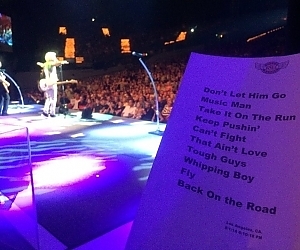 Don't Let Him Go
Music Man
Take It On The Run
Keep Pushin'
Can't Fight
That Ain't Love
Tough Guys
Whipping Boy
Fly
Back On the Road
Los Angeles, CA